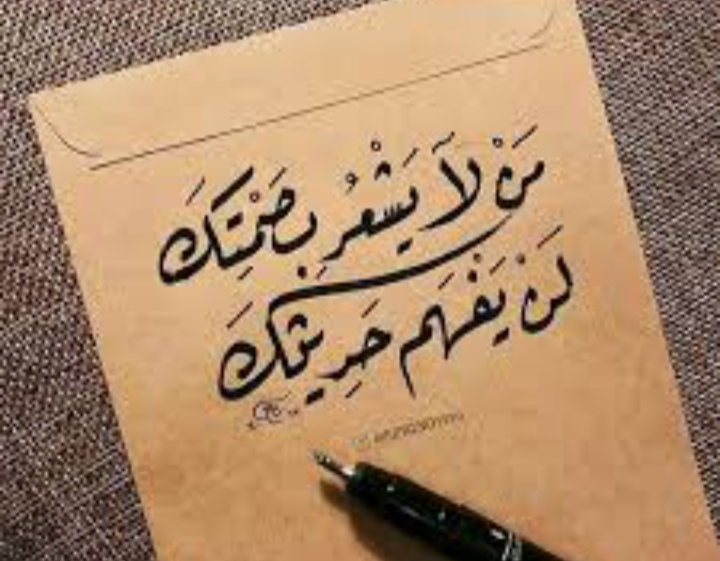 مَنْ لَا يَشْعُر بِصَمْتِكَ
لَنْ يَفْهَم حَدِيثكَ